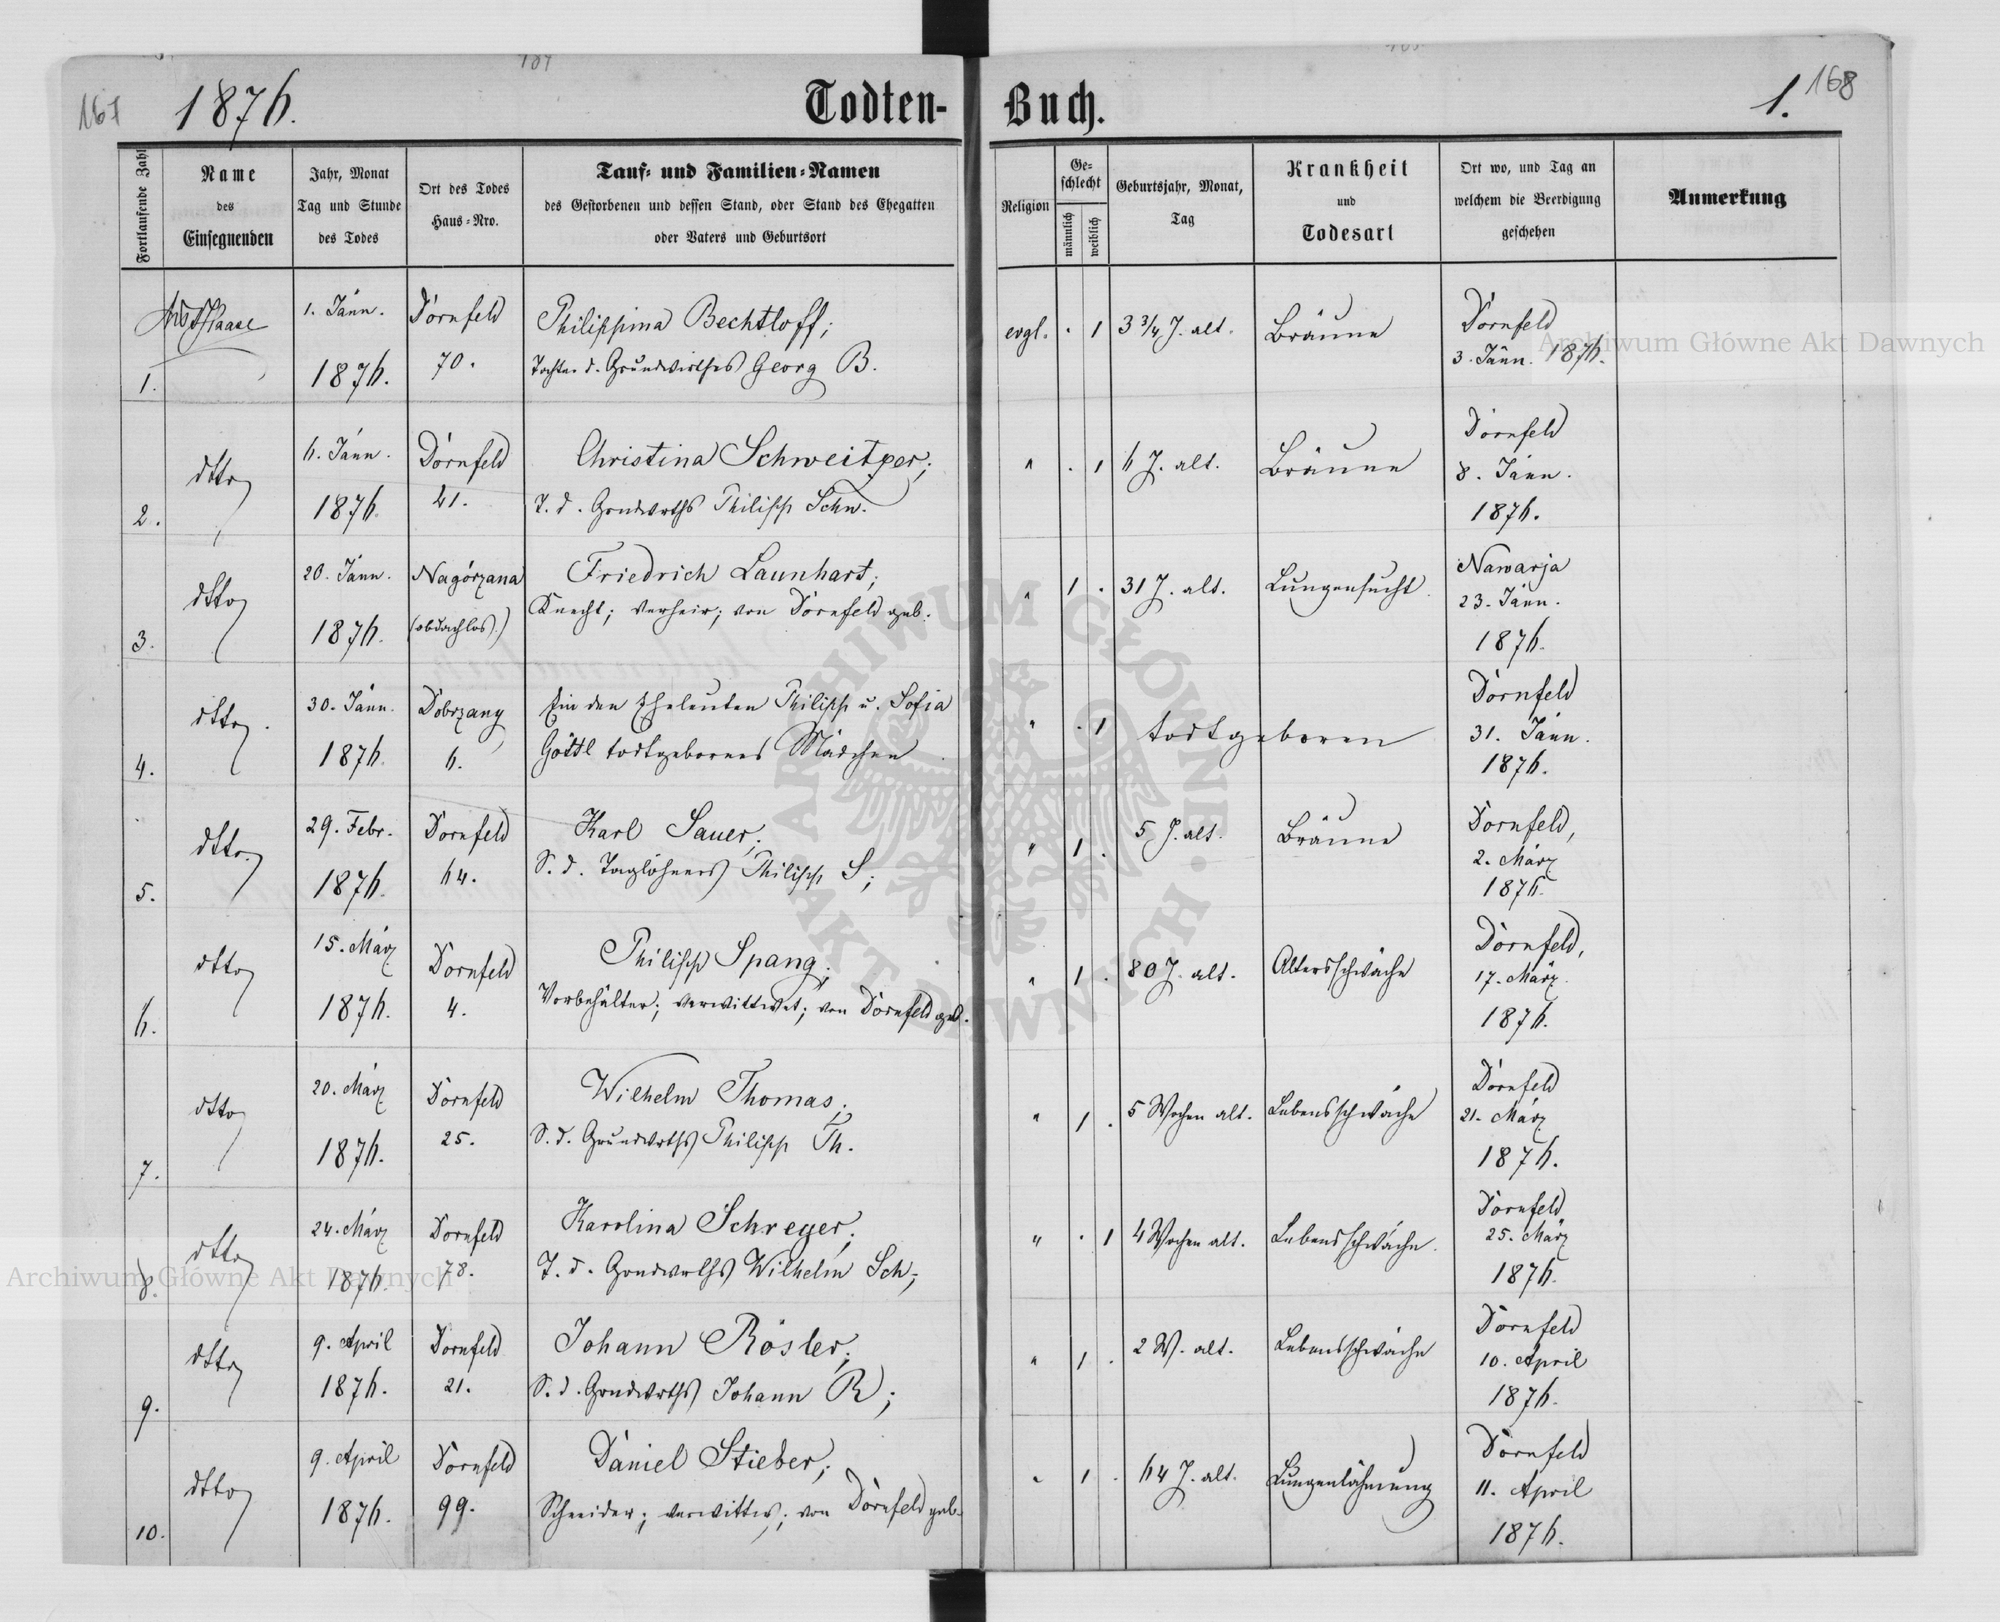 167
1876.
Todten-
Buch.
1.
168
Fortlaufende Zahl
Name
des
Einsegnenden
Jahr, Monat
Tag und Stunde
des Todes
Ort des Todes
Haus-Nro.
Tauf- und Familien-Namen
des Gestorbenen und dessen Stand, oder Stand des Ehegatten
oder Vaters und Geburtsort
Religion
Ge-
schlecht
männlich
weiblich
Geburtsjahr, Monat,
Tag
Krankheit
und
Todesart
Ort wo, und Tag an
welchem die Beerdigung
geschehen
Anmerkung
1.
Haase
1. Jänn.
1876.
Dornfeld
70.
Philippina Bechtloff;
Tochter d. Grundwirthes Georg B.
evgl.
. 1
3 3/4 J. alt.
Bräune
Dornfeld
3. Jänn. 1876.
2.
dtto
6. Jänn.
1876.
Dornfeld
21.
Christina Schweitzer;
T. d. Grndwrths Philipp Schw.
"
. 1
6 J. alt.
Bräune
Dornfeld
8. Jänn.
1876.
3.
dtto
20. Jänn.
1876.
Nagórzana
(obdachlos.)
Friedrich Launhart;
Knecht; verheir; von Dornfeld geb.
"
1 .
31 J. alt.
Lungensucht.
Nawarja
23. Jänn.
1876.
4.
dtto.
30. Jänn.
1876.
Dobrzany
6.
Ein den Eheleuten Philipp u. Sofia
Göttl todtgebornes Mädchen
"
. 1
todtgeboren
Dornfeld
31. Jänn.
1876.
5.
dtto.
29. Febr.
1876.
Dornfeld
64.
Karl Sauer;
S. d. Taglöhners Philipp S;
"
1 .
5 J. alt.
Bräune
Dornfeld,
2. März
1876.
6.
dtto
15. März
1876.
Dornfeld
4.
Philipp Spang;
Vorbehälter; verwittwet; von Dornfeld geb.
"
1 .
80 J. alt.
Altersschwäche
Dornfeld,
17. März.
1876.
7.
dtto
20. März
1876.
Dornfeld
25.
Wilhelm Thomas;
S. d. Grundwrths Philipp Th.
"
1 .
5 Wochen alt.
Lebensschwäche
Dornfeld
21. März
1876.
8.
dtto
24. März
1876.
Dornfeld
78.
Karolina Schreyer;
T. d. Grndwrths Wilhelm Sch;
"
. 1
4 Wochen alt.
Lebensschwäche.
Dornfeld
25. März
1876.
9.
dtto
9. April
1876.
Dornfeld
21.
Johann Rösler;
S. d. Grndwrths Johann R;
"
1 .
2 W. alt.
Lebensschwäche
Dornfeld
10. April
1876.
10.
dtto
9. April
1876.
Dornfeld
99.
Daniel Stieber;
Schneider; verwittw; von Dornfeld geb.
"
1 .
64 J. alt.
Lungenlähmung
Dornfeld
11. April
1876.
Archiwum Główne Akt Dawnych
Archiwum Główne Akt Dawnych
ARCHIWUM GŁÓWNE · AKT DAWNYCH ·